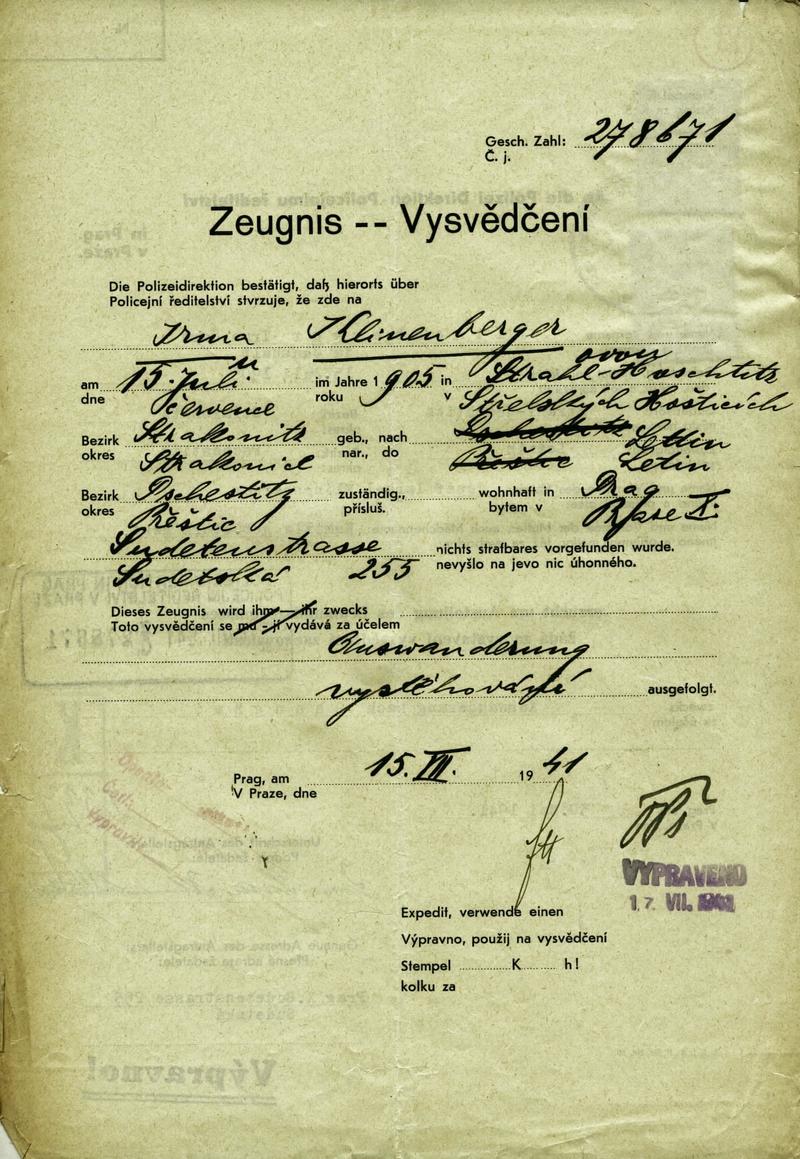 Gesch. Zahl: 278671
Č. j.
Zeugnis -- Vysvědčení
Die Polizeidirektion bestätigt, daß hierorts über
Policejní ředitelství stvrzuje, že zde na
Irma Klinenberger
ovou
am 15. Juli im Jahre 1905 in Strahl-Hoschtitz
dne července roku v Střelských Hošticích
Bezirk Strakonitz geb., nach Lettin
okres Strakonice nar., do Přeštic Letin
Bezirk Pschestitz zuständig., wohnhaft in Prag
okres Přeštic přísluš. bytem v Praze X.
Sudetenstrasse nichts strafbares vorgefunden wurde.
Sudetská 255 nevyšlo na jevo nic úhonného.
Dieses Zeugnis wird ihm — ihr zwecks
Toto vysvědčení se mu - jí vydává za účelem
Auswanderung
vystěhování ausgefolgt.
Prag, am 15. VII. 1941
V Praze, dne
VYPRAVENO
17. VII. 1941
Expedit, verwende einen
Výpravno, použij na vysvědčení
Stempel K h!
kolku za